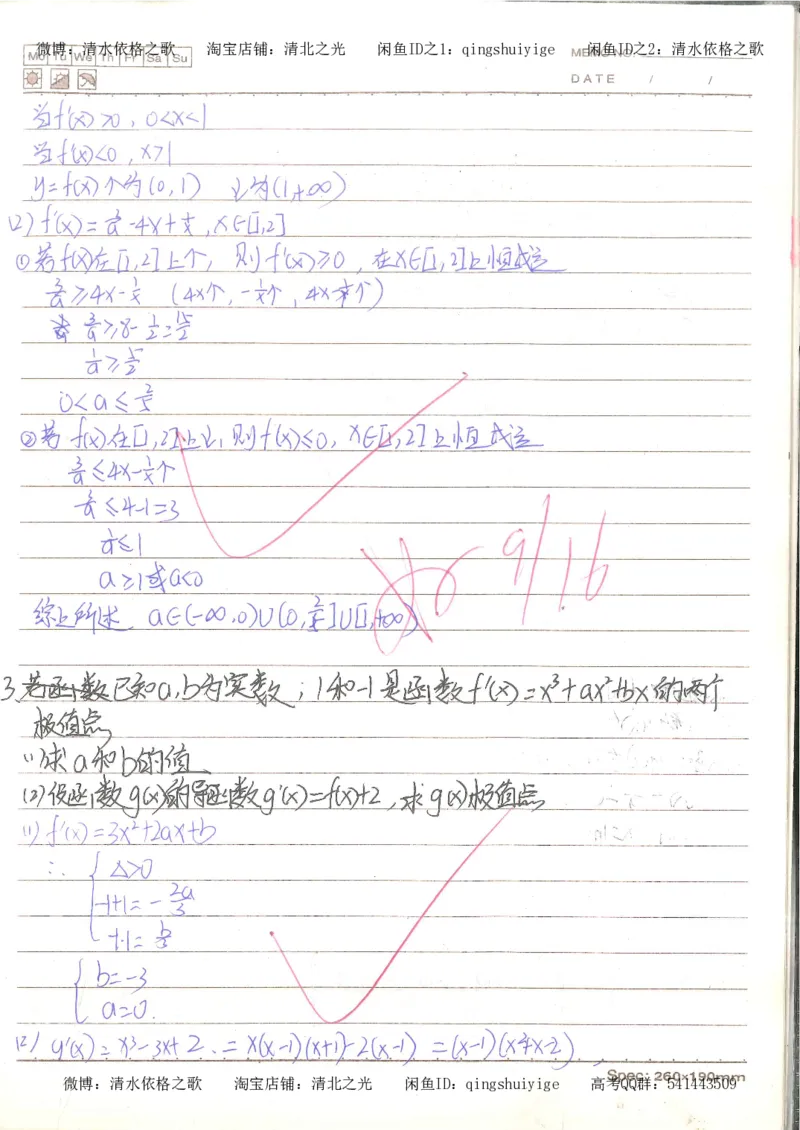 微博：清水依格之歌 淘宝店铺：清北之光 闲鱼ID之1：qingshuiyige 闲鱼ID之2：清水依格之歌
Mo Tu We Th Fr Sa Su
MEMO NO.
DATE / /
当f'(x)>0，0<x<1
当f'(x)<0，x>1
y=f(x)个为(0,1) ↓为(1,+∞)
(2) f'(x)=3/a-4x+1/x，x∈[1,2]
①若f(x)在[1,2]上个，则f'(x)≥0，在x∈[1,2]上恒成立
3/a≥4x-1/x (4x个，-1/x个，4x-1/x个)
3/a≥8-1/2=15/2
1/a≥5/2
0<a≤2/5
②若f(x)在[1,2]上↓，则f'(x)≤0，x∈[1,2]上恒成立
3/a≤4x-1/x个
3/a≤4-1=3
1/a≤1
a≥1或a<0
综上所述 a∈(-∞,0)∪(0,2/5]∪[1,+∞)
9/16
3.若函数已知a,b为实数；1和-1是函数f'(x)=x³+ax²+bx的两个
极值点
(1)求a和b的值
(2)设函数g(x)的导函数g'(x)=f(x)+2，求g(x)极值点
(1) f'(x)=3x²+2ax+b
∴ { Δ>0
-1+1=-2a/3
-1·1=b/3
{ b=-3
a=0.
(2) g'(x)=x³-3x+2.=x(x-1)(x+1)-2(x-1)=(x-1)(x²+x-2).
Spec: 260x190mm
微博：清水依格之歌 淘宝店铺：清北之光 闲鱼ID：qingshuiyige 高考QQ群：541443509